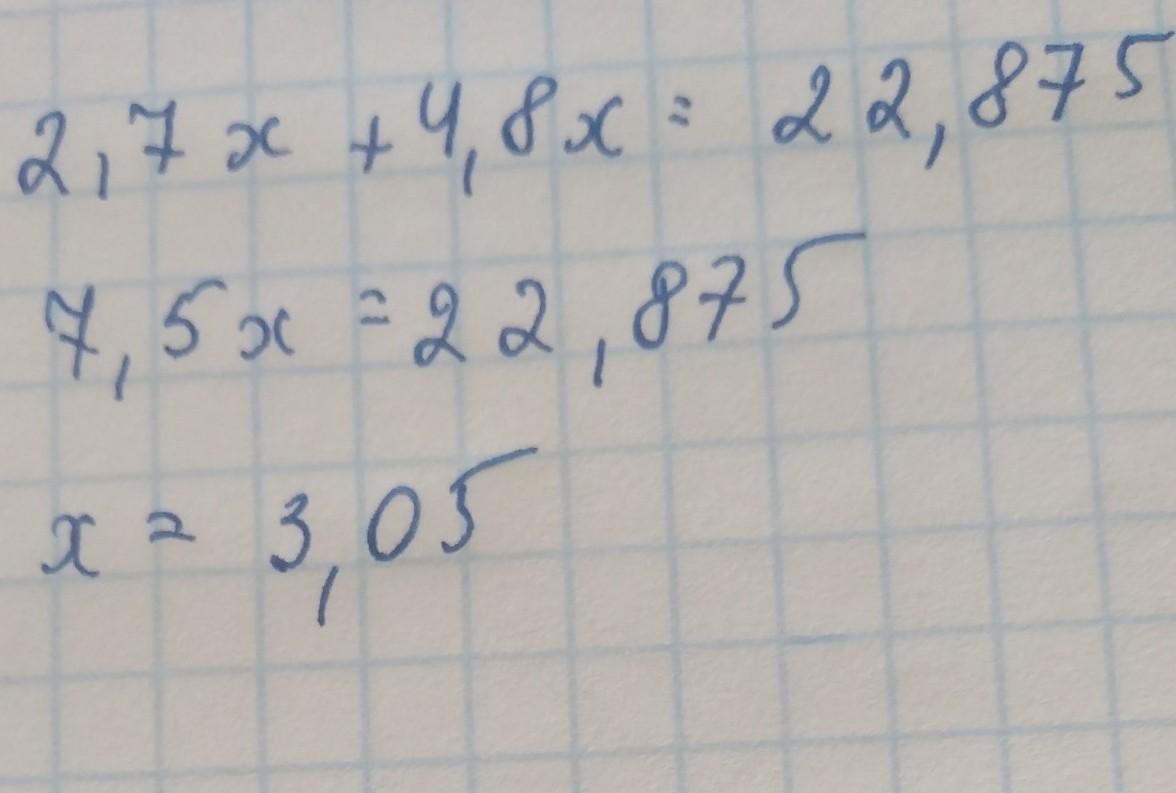 2,7x + 4,8x = 22,875
7,5x = 22,875
x = 3,05